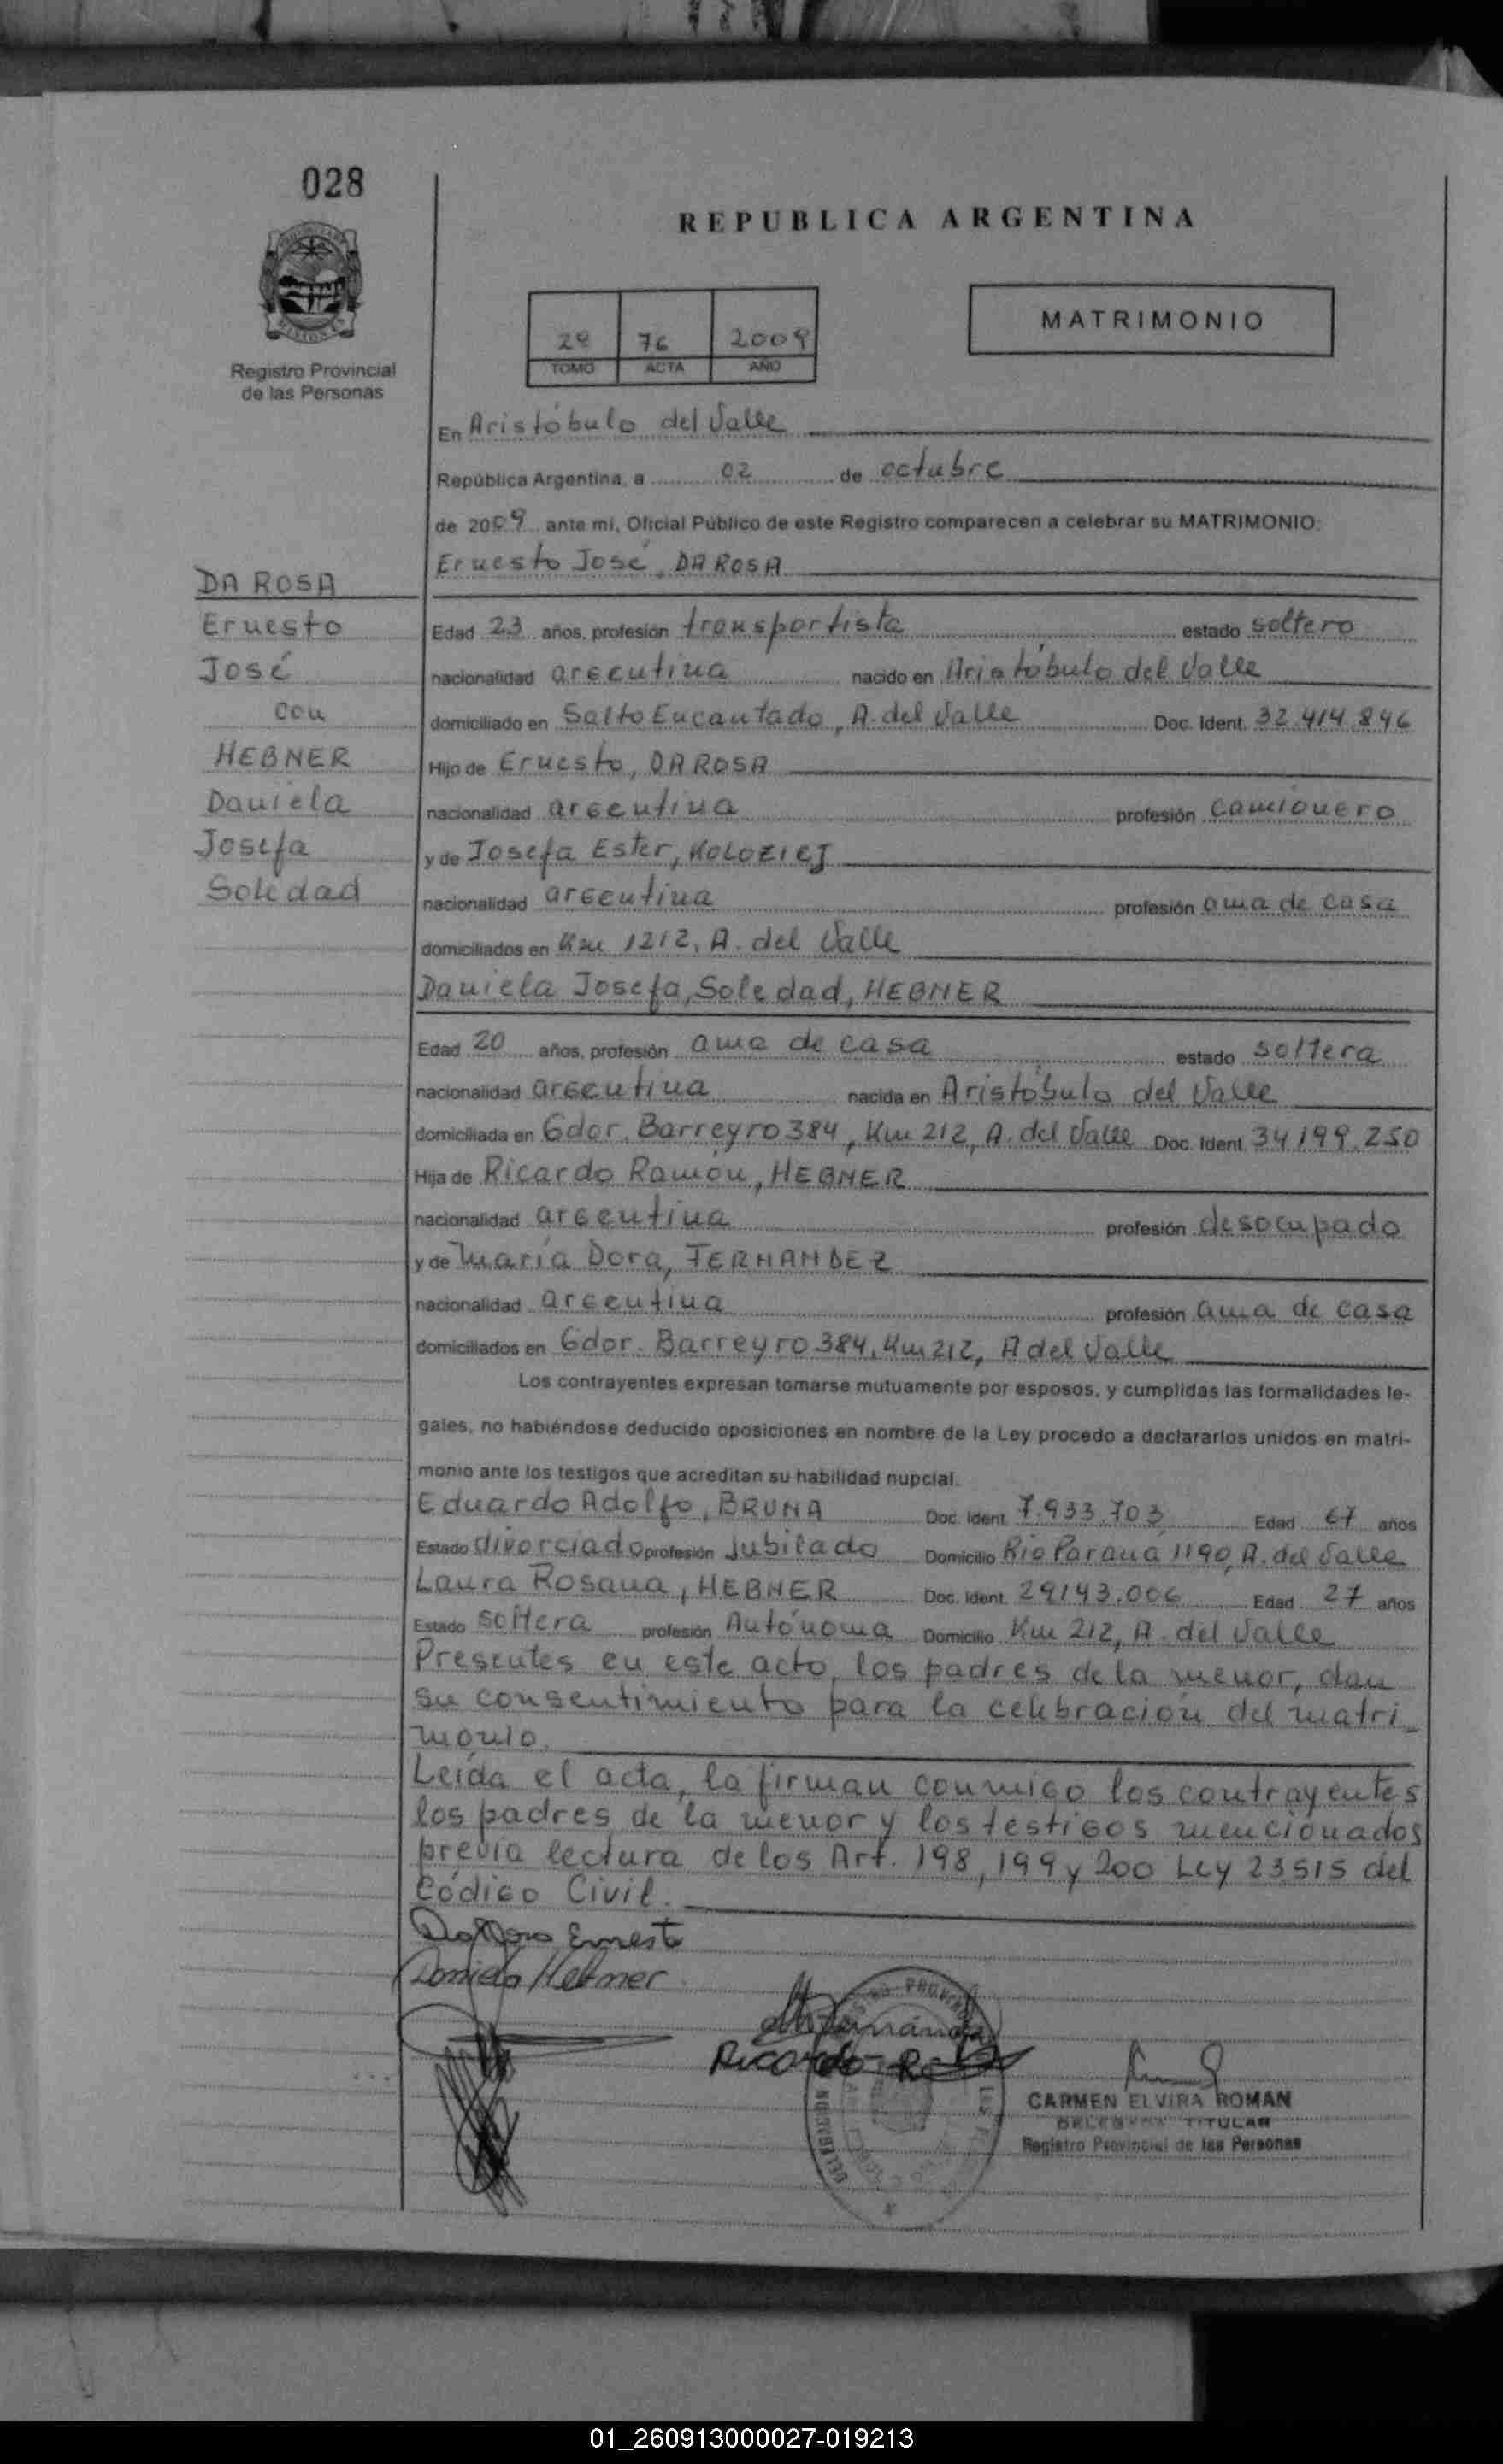 028
REPUBLICA ARGENTINA
MATRIMONIO
76 2009
TOMO ACTA AÑO
Registro Provincial
de las Personas
En Aristóbulo del Valle
República Argentina, a 02 de octubre
de 2009 ante mí, Oficial Público de este Registro comparecen a celebrar su MATRIMONIO:
Ernesto José, DA ROSA
DA ROSA
Ernesto
José
con
HEBNER
Daniela
Josefa
Soledad
Edad 23 años, profesión transportista estado soltero
nacionalidad argentina nacido en Aristóbulo del Valle
domiciliado en Salto Encantado, A. del Valle Doc. Ident. 32.414.846
Hijo de Ernesto, DA ROSA
nacionalidad argentina profesión camionero
y de Josefa Ester, KOLOZIEJ
nacionalidad argentina profesión ama de casa
domiciliados en Km 1212, A. del Valle
Daniela Josefa, Soledad, HEBNER
Edad 20 años, profesión ama de casa estado soltera
nacionalidad argentina nacida en Aristóbulo del Valle
domiciliada en Gdor. Barreyro 384, Km 212, A. del Valle Doc. Ident. 34.199.250
Hija de Ricardo Ramón, HEBNER
nacionalidad argentina profesión desocupado
y de María Dora, FERNANDEZ
nacionalidad argentina profesión ama de casa
domiciliados en Gdor. Barreyro 384, Km 212, A del Valle
Los contrayentes expresan tomarse mutuamente por esposos, y cumplidas las formalidades le-
gales, no habiéndose deducido oposiciones en nombre de la Ley procedo a declararlos unidos en matri-
monio ante los testigos que acreditan su habilidad nupcial.
Eduardo Adolfo, BRUNA Doc. Ident. 7.933.703 Edad 67 años
Estado divorciado profesión Jubilado Domicilio Rio Parana 1190, A. del Valle
Laura Rosana, HEBNER Doc. Ident. 29143.006 Edad 27 años
Estado soltera profesión Autónoma Domicilio Km 212, A. del Valle
Presentes en este acto, los padres de la menor, dan
su consentimiento para la celebración del matri-
monio.
Leída el acta, la firman conmigo los contrayentes
los padres de la menor y los testigos mencionados
previa lectura de los Art. 198, 199 y 200 Ley 23515 del
Código Civil.
Da Rosa Ernesto
Daniela Hebner
Fernández
Ricardo
CARMEN ELVIRA ROMAN
DELEGADA TITULAR
Registro Provincial de las Personas
01_260913000027-019213